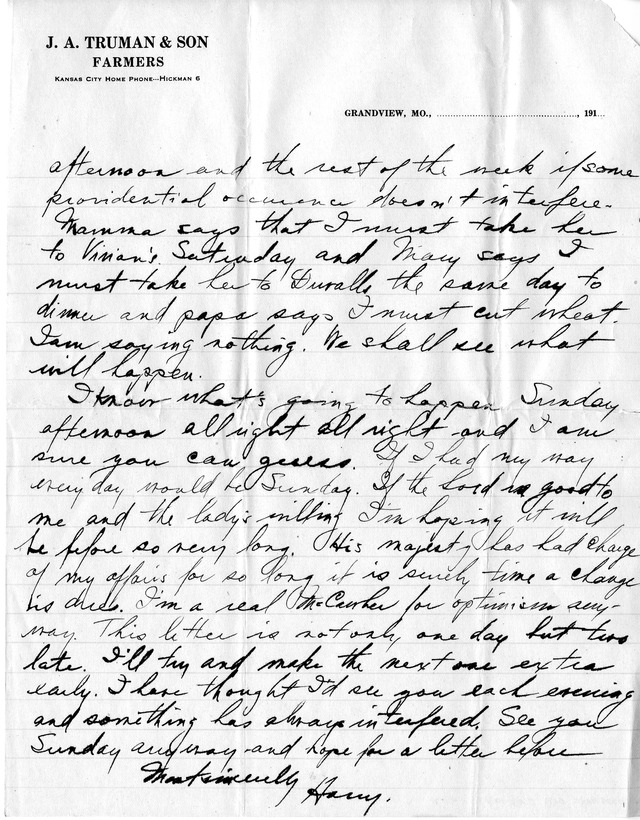 J. A. TRUMAN & SON
FARMERS
KANSAS CITY HOME PHONE---HICKMAN 6
GRANDVIEW, MO., ........................................, 191...
afternoon and the rest of the week if some
providential occurence doesn't interfere.
Mamma says that I must take her
to Vivian's Saturday and Mary says I
must take her to Duvalls the same day to
dinner and papa says I must cut wheat.
I am saying nothing. We shall see what
will happen.
I know what's going to happen Sunday
afternoon all right all right and I am
sure you can guess. If I had my way
every day would be Sunday. If the Lord is good to
me and the lady's willing I'm hoping it will
be before so very long. His majesty has had charge
of my affairs for so long it is surely time a change
is due. I'm a real McCawber for optimism any-
way. This letter is not only one day but two
late. I'll try and make the next one extra
early. I have thought I'd see you each evening
and something has always interfered. See you
Sunday anyway and hope for a letter before
Most sincerely Harry.